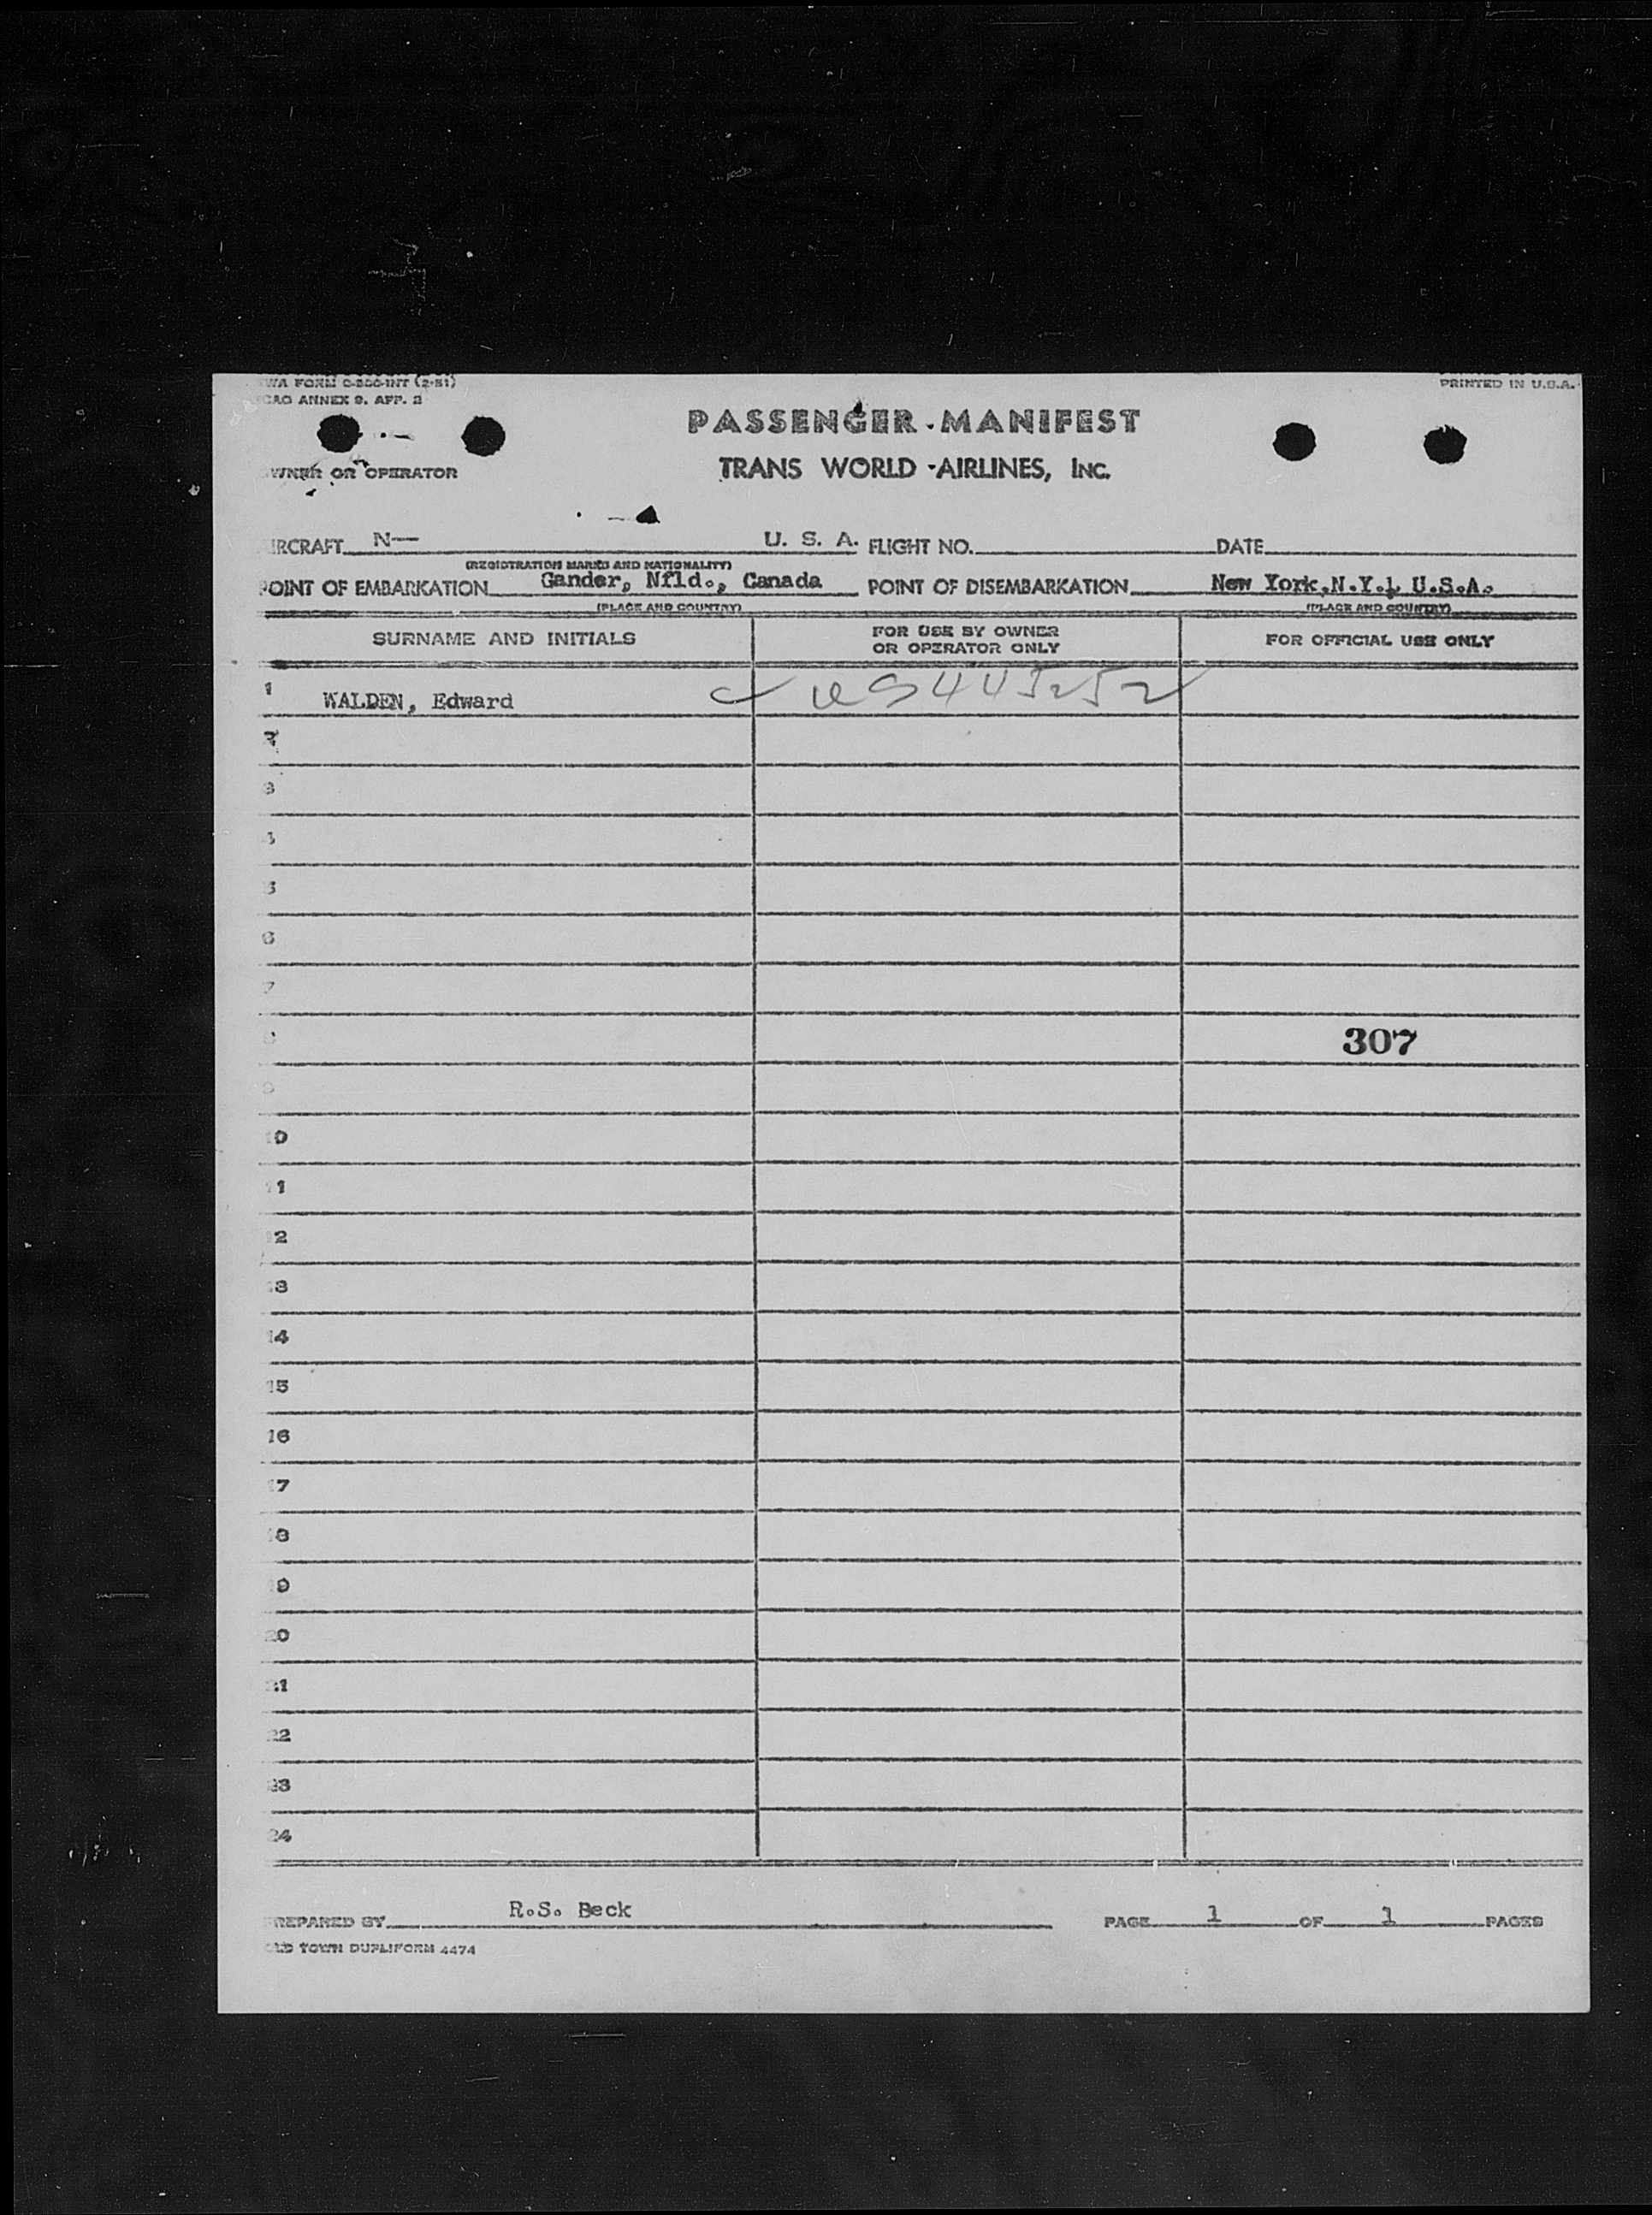 TWA FORM C-200-INT (2-51)
PRINTED IN U.S.A.
ICAO ANNEX 9. APP. 3
PASSENGER MANIFEST
OWNER OR OPERATOR
TRANS WORLD AIRLINES, INC.
AIRCRAFT N— U. S. A. FLIGHT NO. DATE
(REGISTRATION MARKS AND NATIONALITY)
POINT OF EMBARKATION Gander, Nfld., Canada POINT OF DISEMBARKATION New York, N.Y., U.S.A.
(PLACE AND COUNTRY) (PLACE AND COUNTRY)
SURNAME AND INITIALS FOR USE BY OWNER OR OPERATOR ONLY FOR OFFICIAL USE ONLY
1 WALDEN, Edward
2
3
4
5
6
7
8 307
9
10
11
12
13
14
15
16
17
18
19
20
21
22
23
24
PREPARED BY R.S. Beck PAGE 1 OF 1 PAGES
OLD TOWN DUPLIFORM 4474